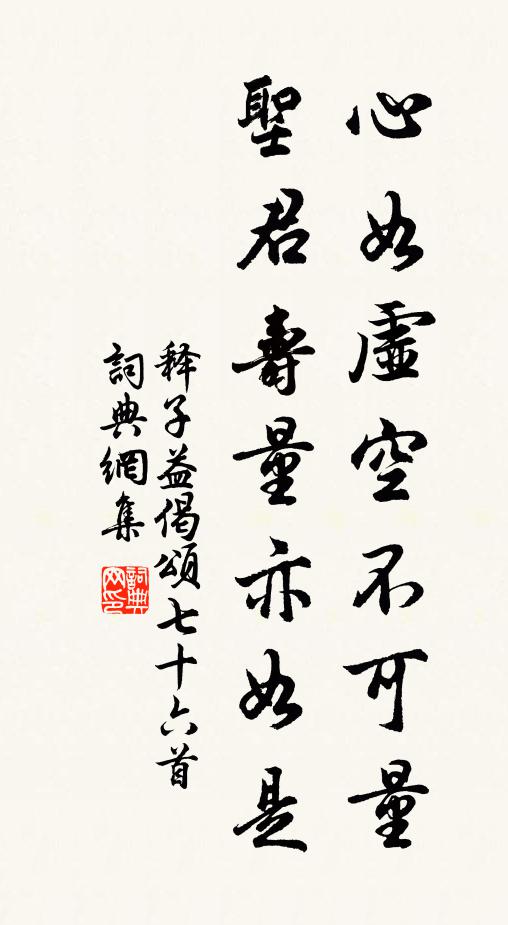 心如虛空不可量
聖君壽量亦如是
释子益偈頌七十六首
詞典網集
詞典网印